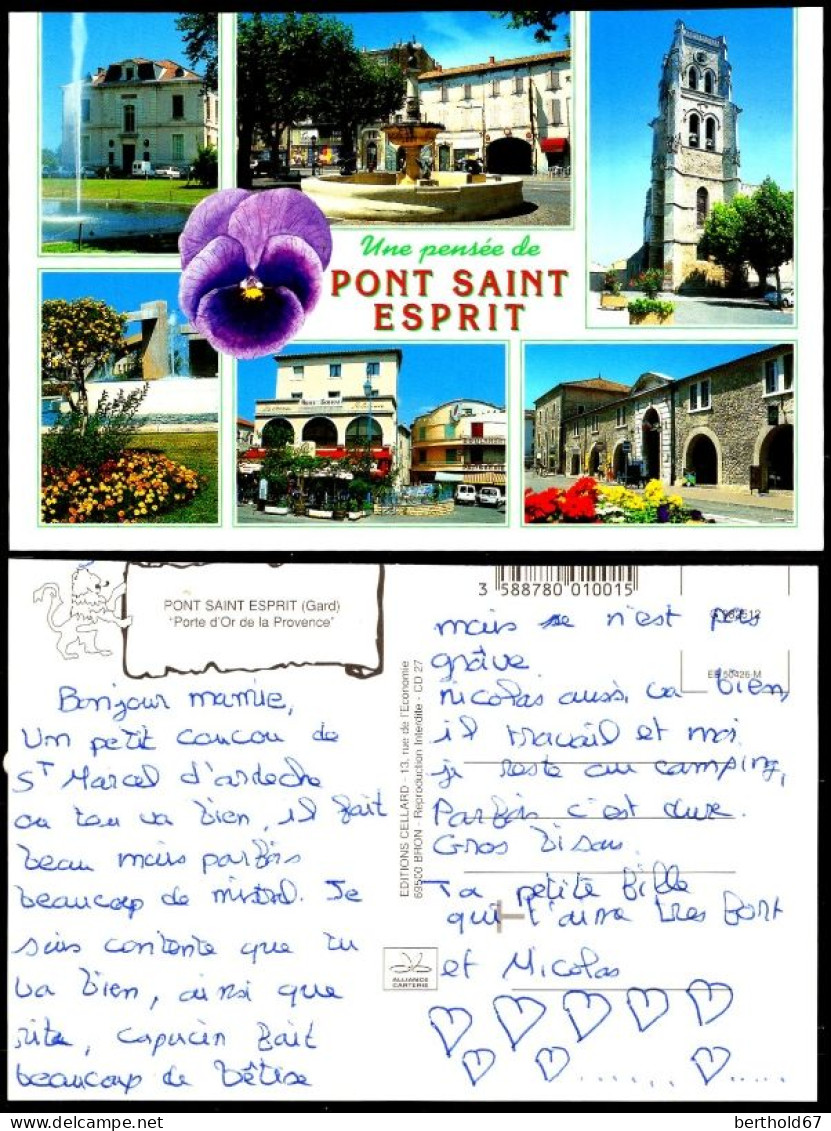 Une pensée de
PONT SAINT
ESPRIT
PONT SAINT ESPRIT (Gard)
"Porte d'Or de la Provence"
Bonjour mamie,
Um petit coucou de
ST Marcel d'ardeche
ou tou va bien, il fait
beau mais parfois
beaucoup de mistral. Je
suis contente que tu
va bien, ainsi que
rita, capucin fait
beaucoup de bêtise
EDITIONS CELLARD - 13, rue de l'Economie
69500 BRON - Reproduction Interdite - CD 27
ALLIANCE
CARTERIE
3 588780 010015
EB 50426-M
mais se n'est pas
grâve.
nicolas aussi va bien,
il travail et moi
je reste au camping,
Parfois c'est dure.
Gros bisou.
Ta petite fille
qui t'aime tres fort
et Nicolas
berthold67